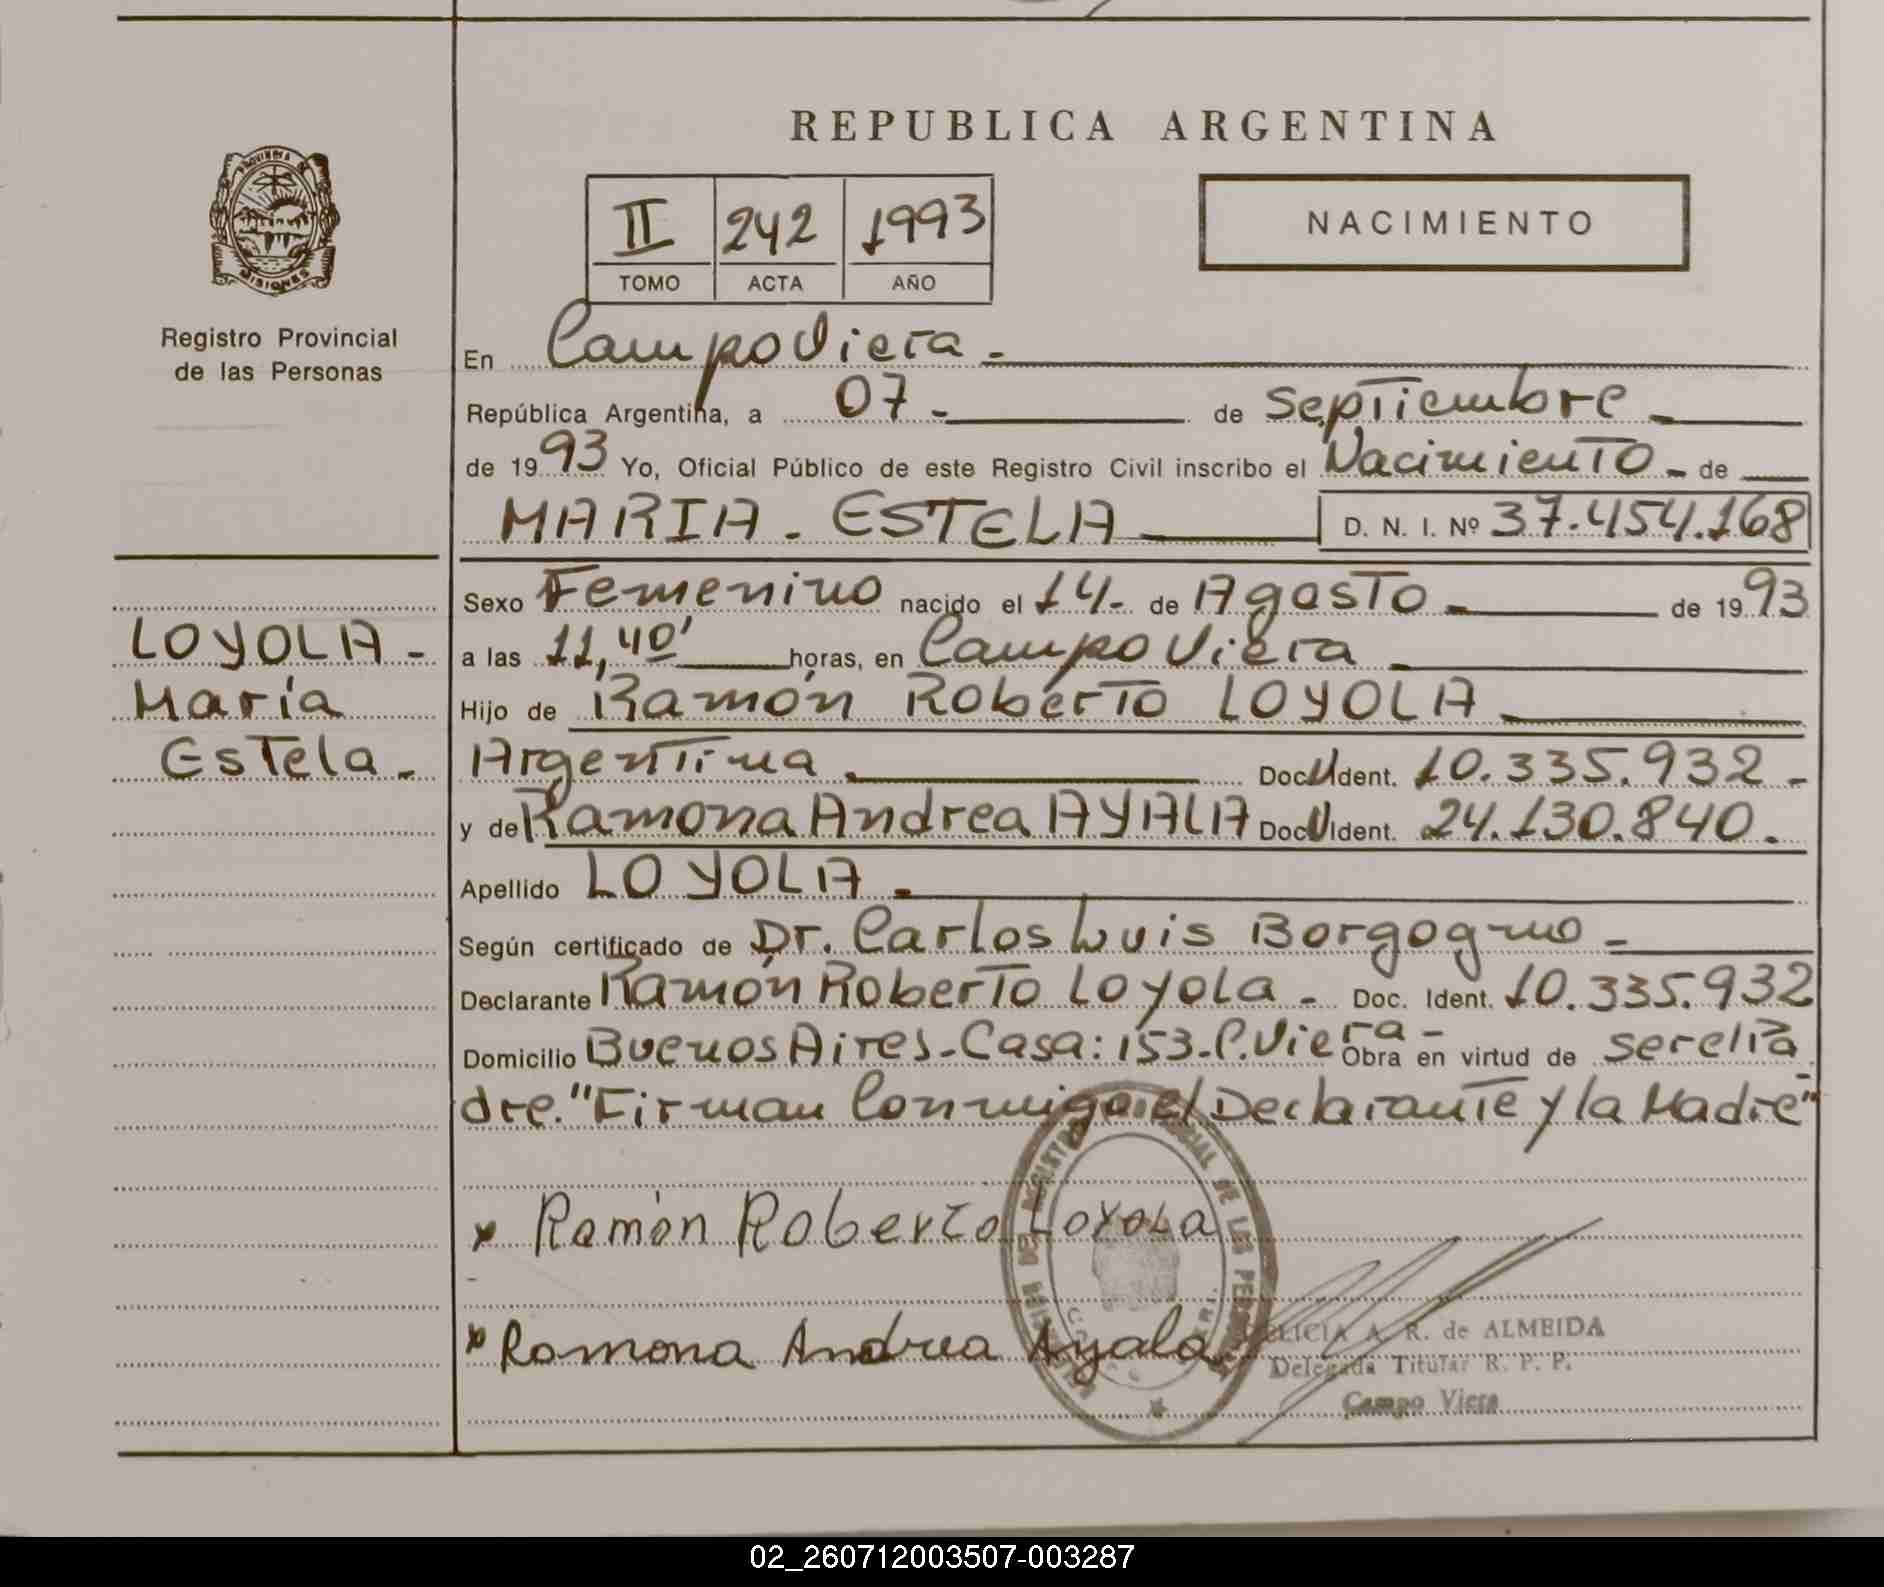 REPUBLICA ARGENTINA
PROVINCIA DE
MISIONES
Registro Provincial
de las Personas
II 242 1993
TOMO ACTA AÑO
NACIMIENTO
En Campo Viera -
República Argentina, a 07 - de Septiembre -
de 1993 Yo, Oficial Público de este Registro Civil inscribo el Nacimiento - de
MARIA - ESTELA D. N. I. Nº 37.454.168
Sexo Femenino nacido el 14 - de Agosto - de 1993
a las 11,40' horas, en Campo Viera
Hijo de Ramón Roberto LOYOLA -
Argentina - Doc U Ident. 10.335.932 -
y de Ramona Andrea AYALA Doc U Ident. 24.130.840.
Apellido LOYOLA -
Según certificado de Dr. Carlos Luis Borgogno -
Declarante Ramón Roberto Loyola - Doc. Ident. 10.335.932
Domicilio Buenos Aires - Casa: 153 - C. Viera - Obra en virtud de
dre. "Firman Conmigo el Declarante y la Madre"
LOYOLA -
María
Estela -
x Ramón Roberto Loyola
x Ramona Andrea Ayala
A. R. de ALMEIDA
Delegada Titular R. P. P.
Campo Viera
02_260712003507-003287